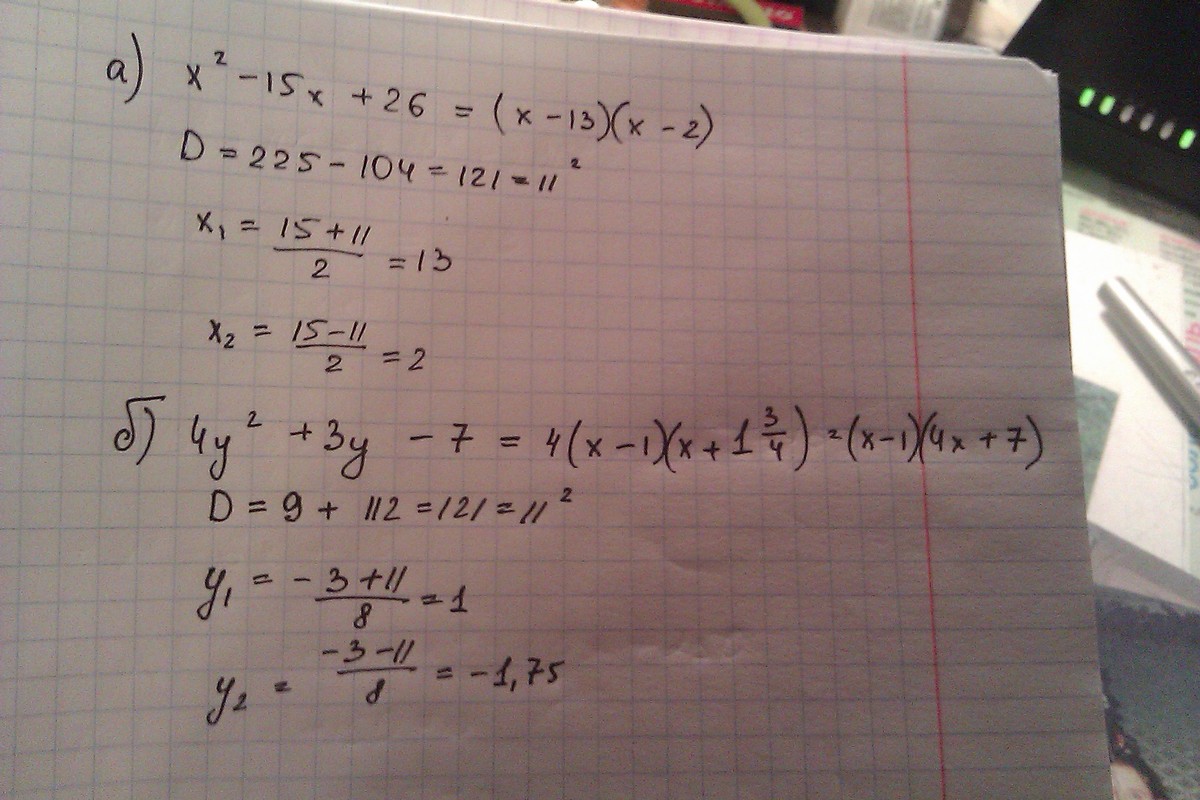 а) x² - 15x + 26 = (x - 13)(x - 2)
D = 225 - 104 = 121 = 11²
x₁ = (15 + 11)/2 = 13
x₂ = (15 - 11)/2 = 2
б) 4y² + 3y - 7 = 4(x - 1)(x + 1 3/4) = (x - 1)(4x + 7)
D = 9 + 112 = 121 = 11²
y₁ = (-3 + 11)/8 = 1
y₂ = (-3 - 11)/8 = -1,75